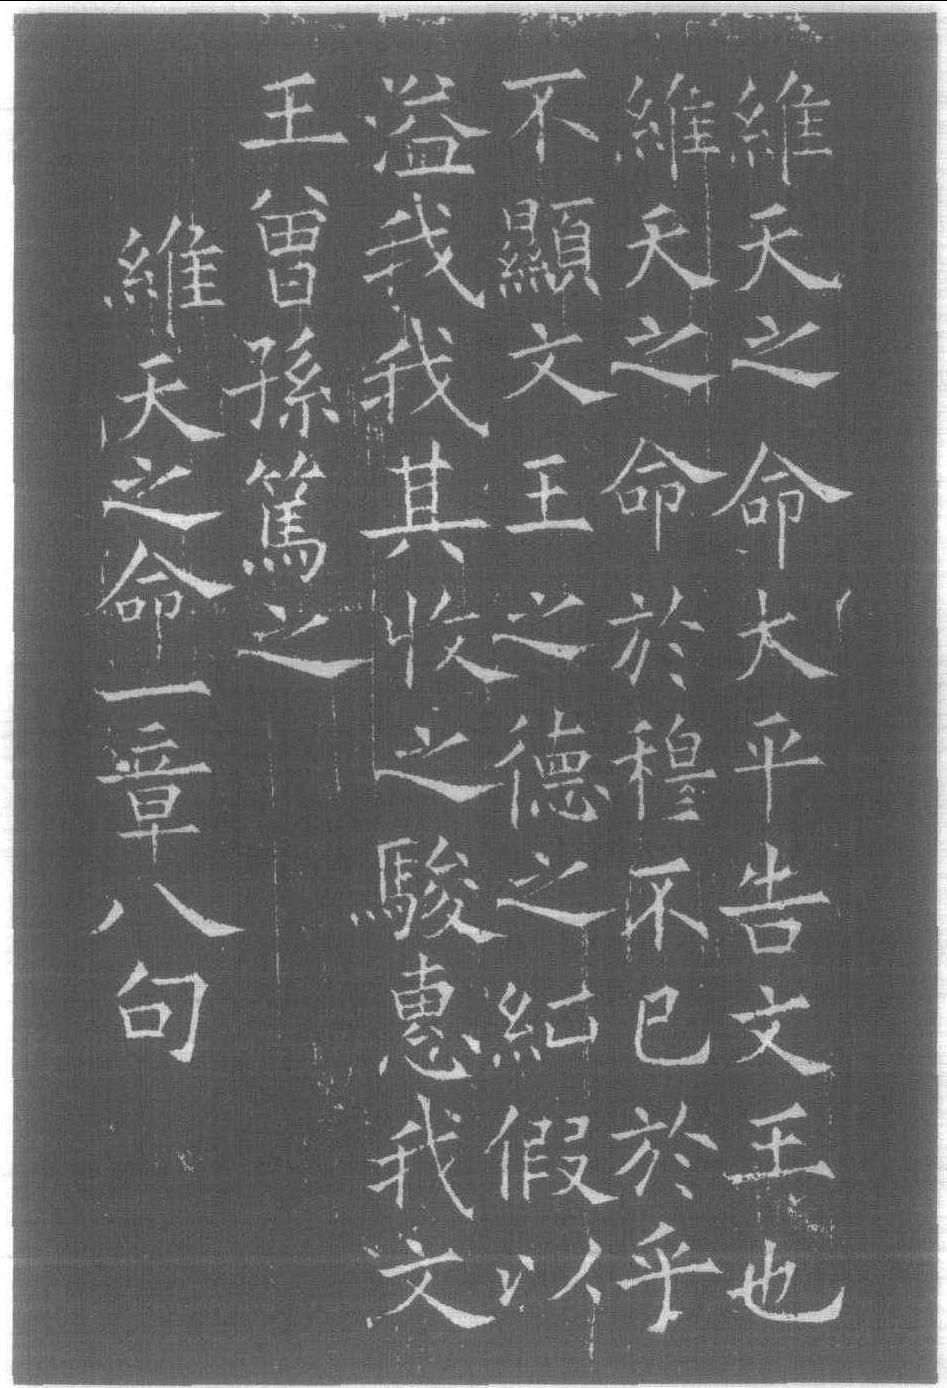 維天之命大平告文王也
維天之命於穆不已於乎
不顯文王之德之純假以
溢我我其收之駿惠我文
王曾孫篤之
維天之命一章八句